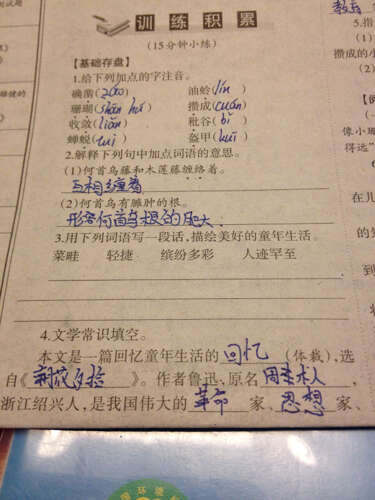 训练积累
教育
(15分钟小练)
5.指
【基础存盘】
攒成的小
1.给下列加点的字注音。
(1)
确凿(záo) 油蛉(lín)
(2)
珊瑚(shān hú) 攒成(cuán)
收敛(liǎn) 秕谷(bǐ)
蝉蜕(tuì) 盔甲(kuī)
像小珊
2.解释下列句中加点词语的意思。
得远”
(1)何首乌藤和木莲藤缠络着。
互相缠着
(2)何首乌有臃肿的根。
形容何首乌根的肥大.
在儿
3.用下列词语写一段话,描绘美好的童年生活。
的
菜畦 轻捷 缤纷多彩 人迹罕至
到
4.文学常识填空。
本文是一篇回忆童年生活的 回忆 (体裁),选
自《朝花夕拾》。作者鲁迅,原名 周树人 ,
浙江绍兴人,是我国伟大的 革命 家、 思想 家、